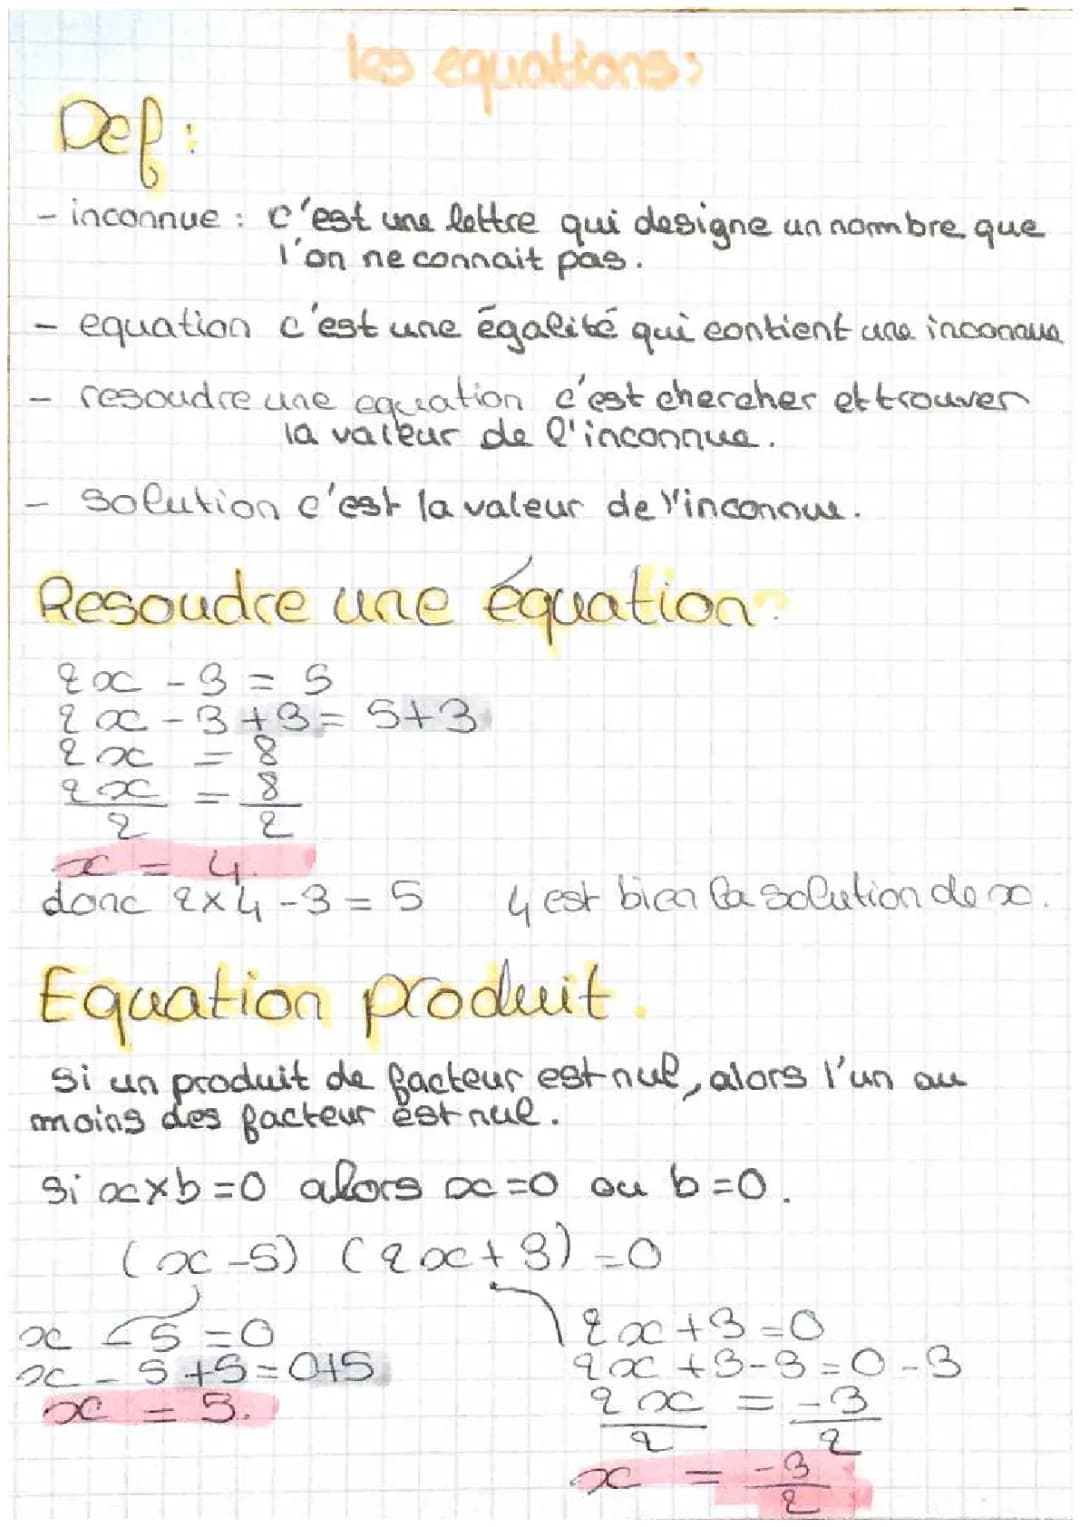 les equations:
Def:
- inconnue : c'est une lettre qui designe un nombre que
l'on ne connait pas.
- equation c'est une égalité qui contient une inconnue
- resoudre une equation c'est chercher et trouver
la valeur de l'inconnue.
- solution c'est la valeur de l'inconnue.
Resoudre une équation:
2x - 3 = 5
2x - 3 + 3 = 5+3
2x = 8
2x/2 = 8/2
x = 4.
donc 2x4-3 = 5 4 est bien la solution de x.
Equation produit.
si un produit de facteur est nul, alors l'un au
moins des facteur est nul.
si x×b=0 alors x=0 ou b=0.
(x-5) (2x+3)=0
x - 5 = 0 2x+3=0
x - 5+5=0+5 2x+3-3=0-3
x = 5. 2x/2 = -3/2
x = -3/2